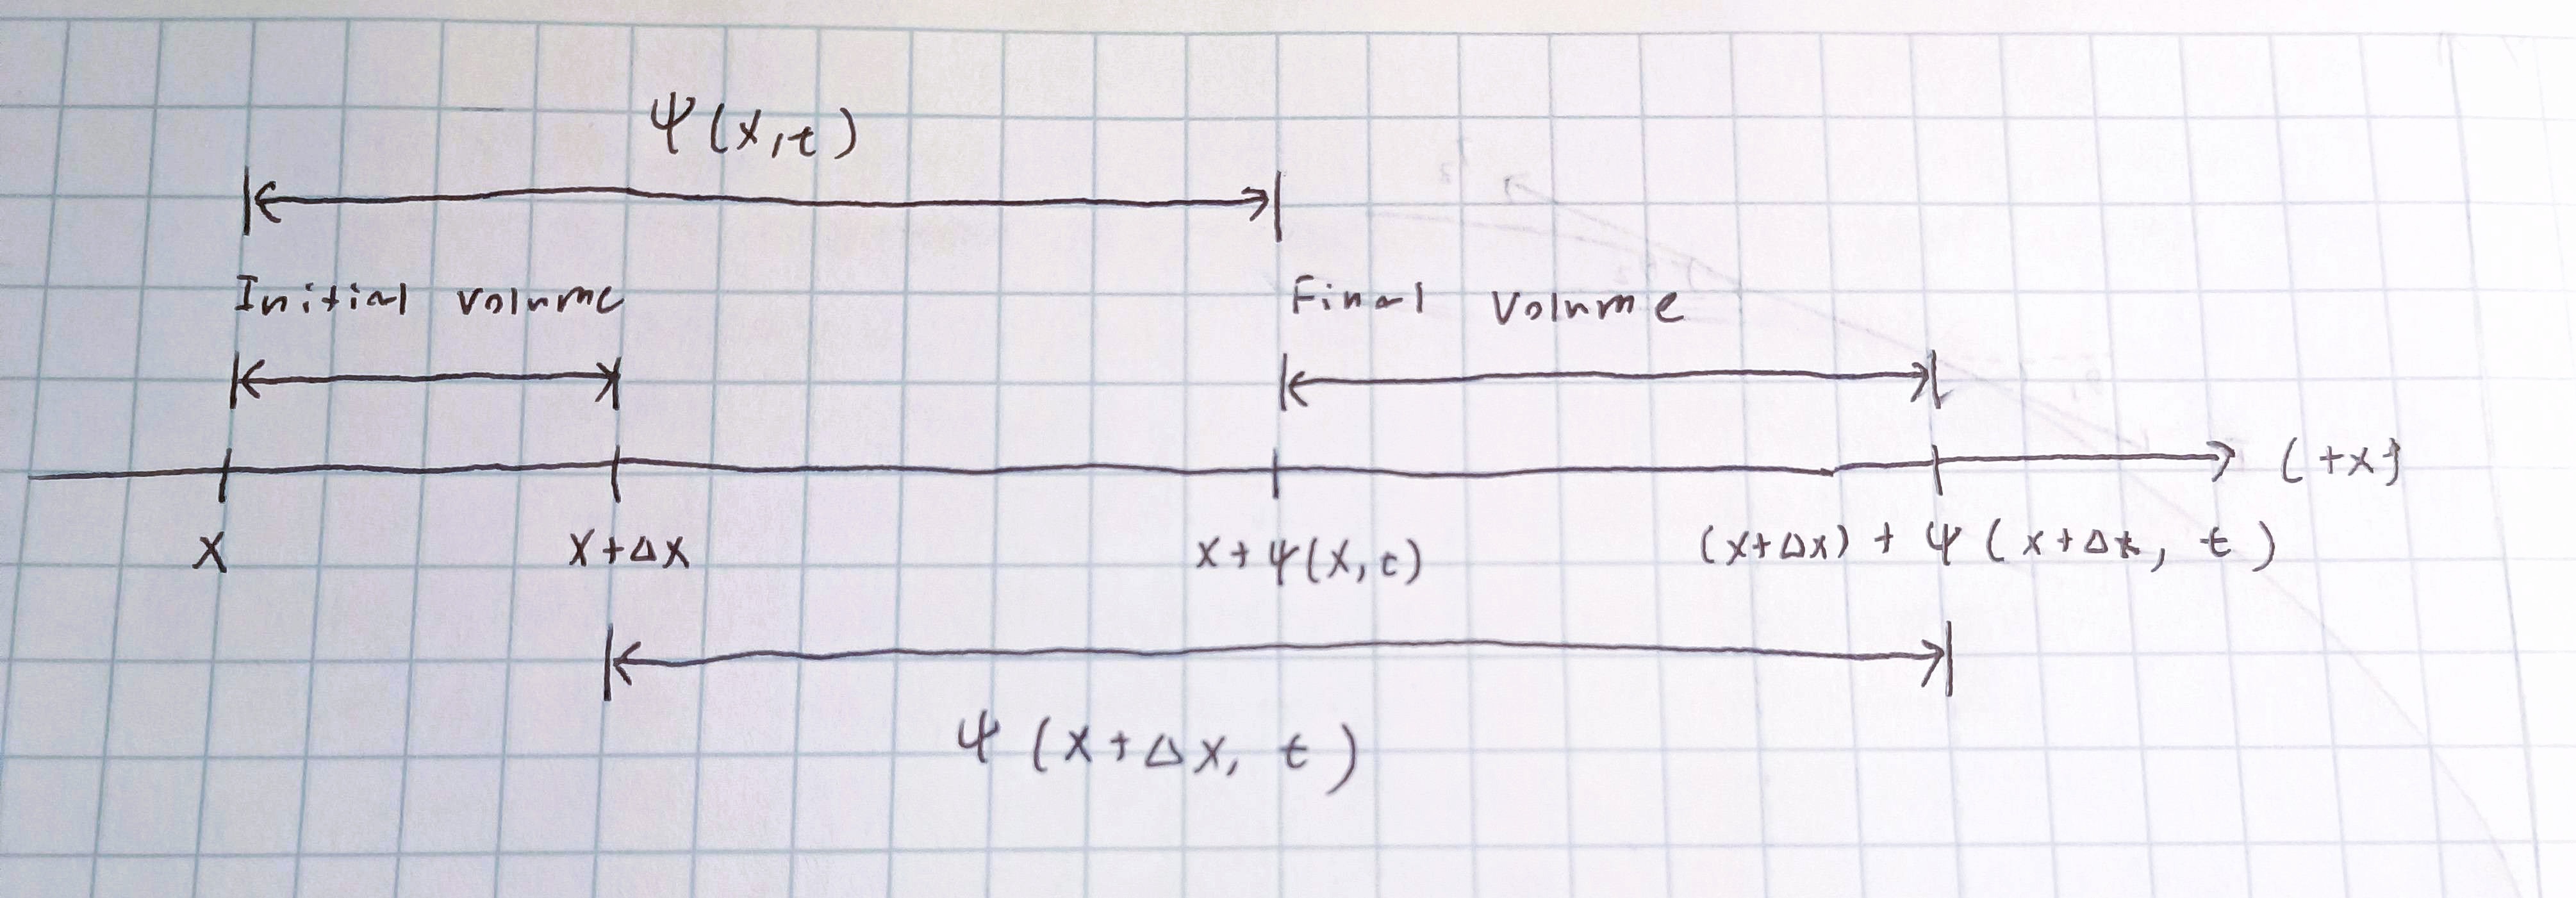 Ψ(x,t)
Initial volume Final Volume
(+x)
x x+Δx x+Ψ(x,t) (x+Δx)+Ψ(x+Δx, t)
Ψ(x+Δx, t)